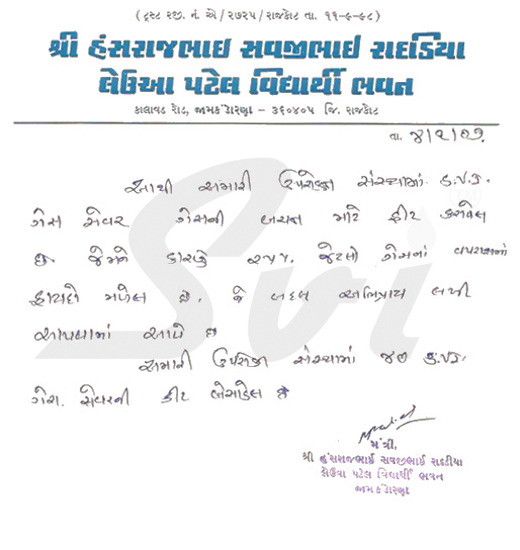 ( ટ્રસ્ટ રજી. નં. એ / ૨૭૨૫ / રાજકોટ તા. ૧૧-૯-૯૮ )
શ્રી હંસરાજભાઇ સવજીભાઇ રાદડિયા
લેઉઆ પટેલ વિદ્યાર્થી ભવન
કાલાવડ રોડ, જામકંડોરણા - ૩૬૦૪૦૫ જિ. રાજકોટ
તા. ૪/૨/૦૭
આથી અમારી ઉપરોક્ત સંસ્થામાં S.V.J.
ગેસ સેવર ગેસની બચત માટે ફીટ કરાવેલ
છે જેમને કારણે ૨૫%. જેટલો ગેસનાં વપરાશમાં
ફાયદો મળેલ છે. જે બદલ અભિપ્રાય લખી
આપવામાં આવે છે
અમારી ઉપરોક્ત સંસ્થામાં S.V.J.
ગેસ. સેવરની કીટ બેસાડેલ છે
મંત્રી,
શ્રી હંસરાજભાઈ સવજીભાઈ રાદડીયા
લેઉવા પટેલ વિદ્યાર્થી ભવન
જામકંડોરણા
Svi